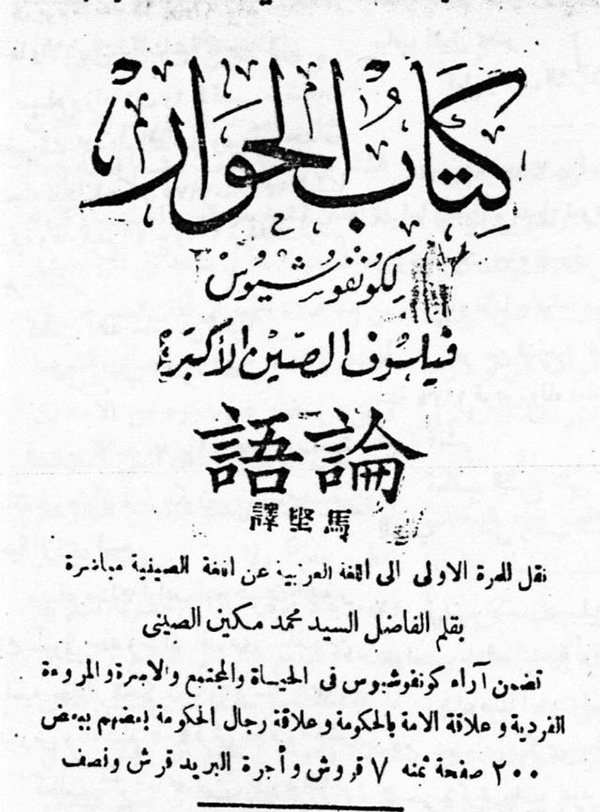 كِتَابُ الحِوَارْ
لِكُونْفُوشْيُوسْ
فَيْلَسُوف الصِّيْن الأَكْبَر
語論
譯堅馬
نقل للمرة الاولى الى اللغة العربية عن اللغة الصينية مباشرة
بقلم الفاضل السيد محمد مكين الصينى
تضمن آراء كونفوشيوس فى الحياة والمجتمع والاسرة والمروءة
الفردية وعلاقة الامة بالحكومة وعلاقة رجال الحكومة بعضهم ببعض
٢٠٠ صفحة ثمنه ٧ قروش وأجرة البريد قرش ونصف